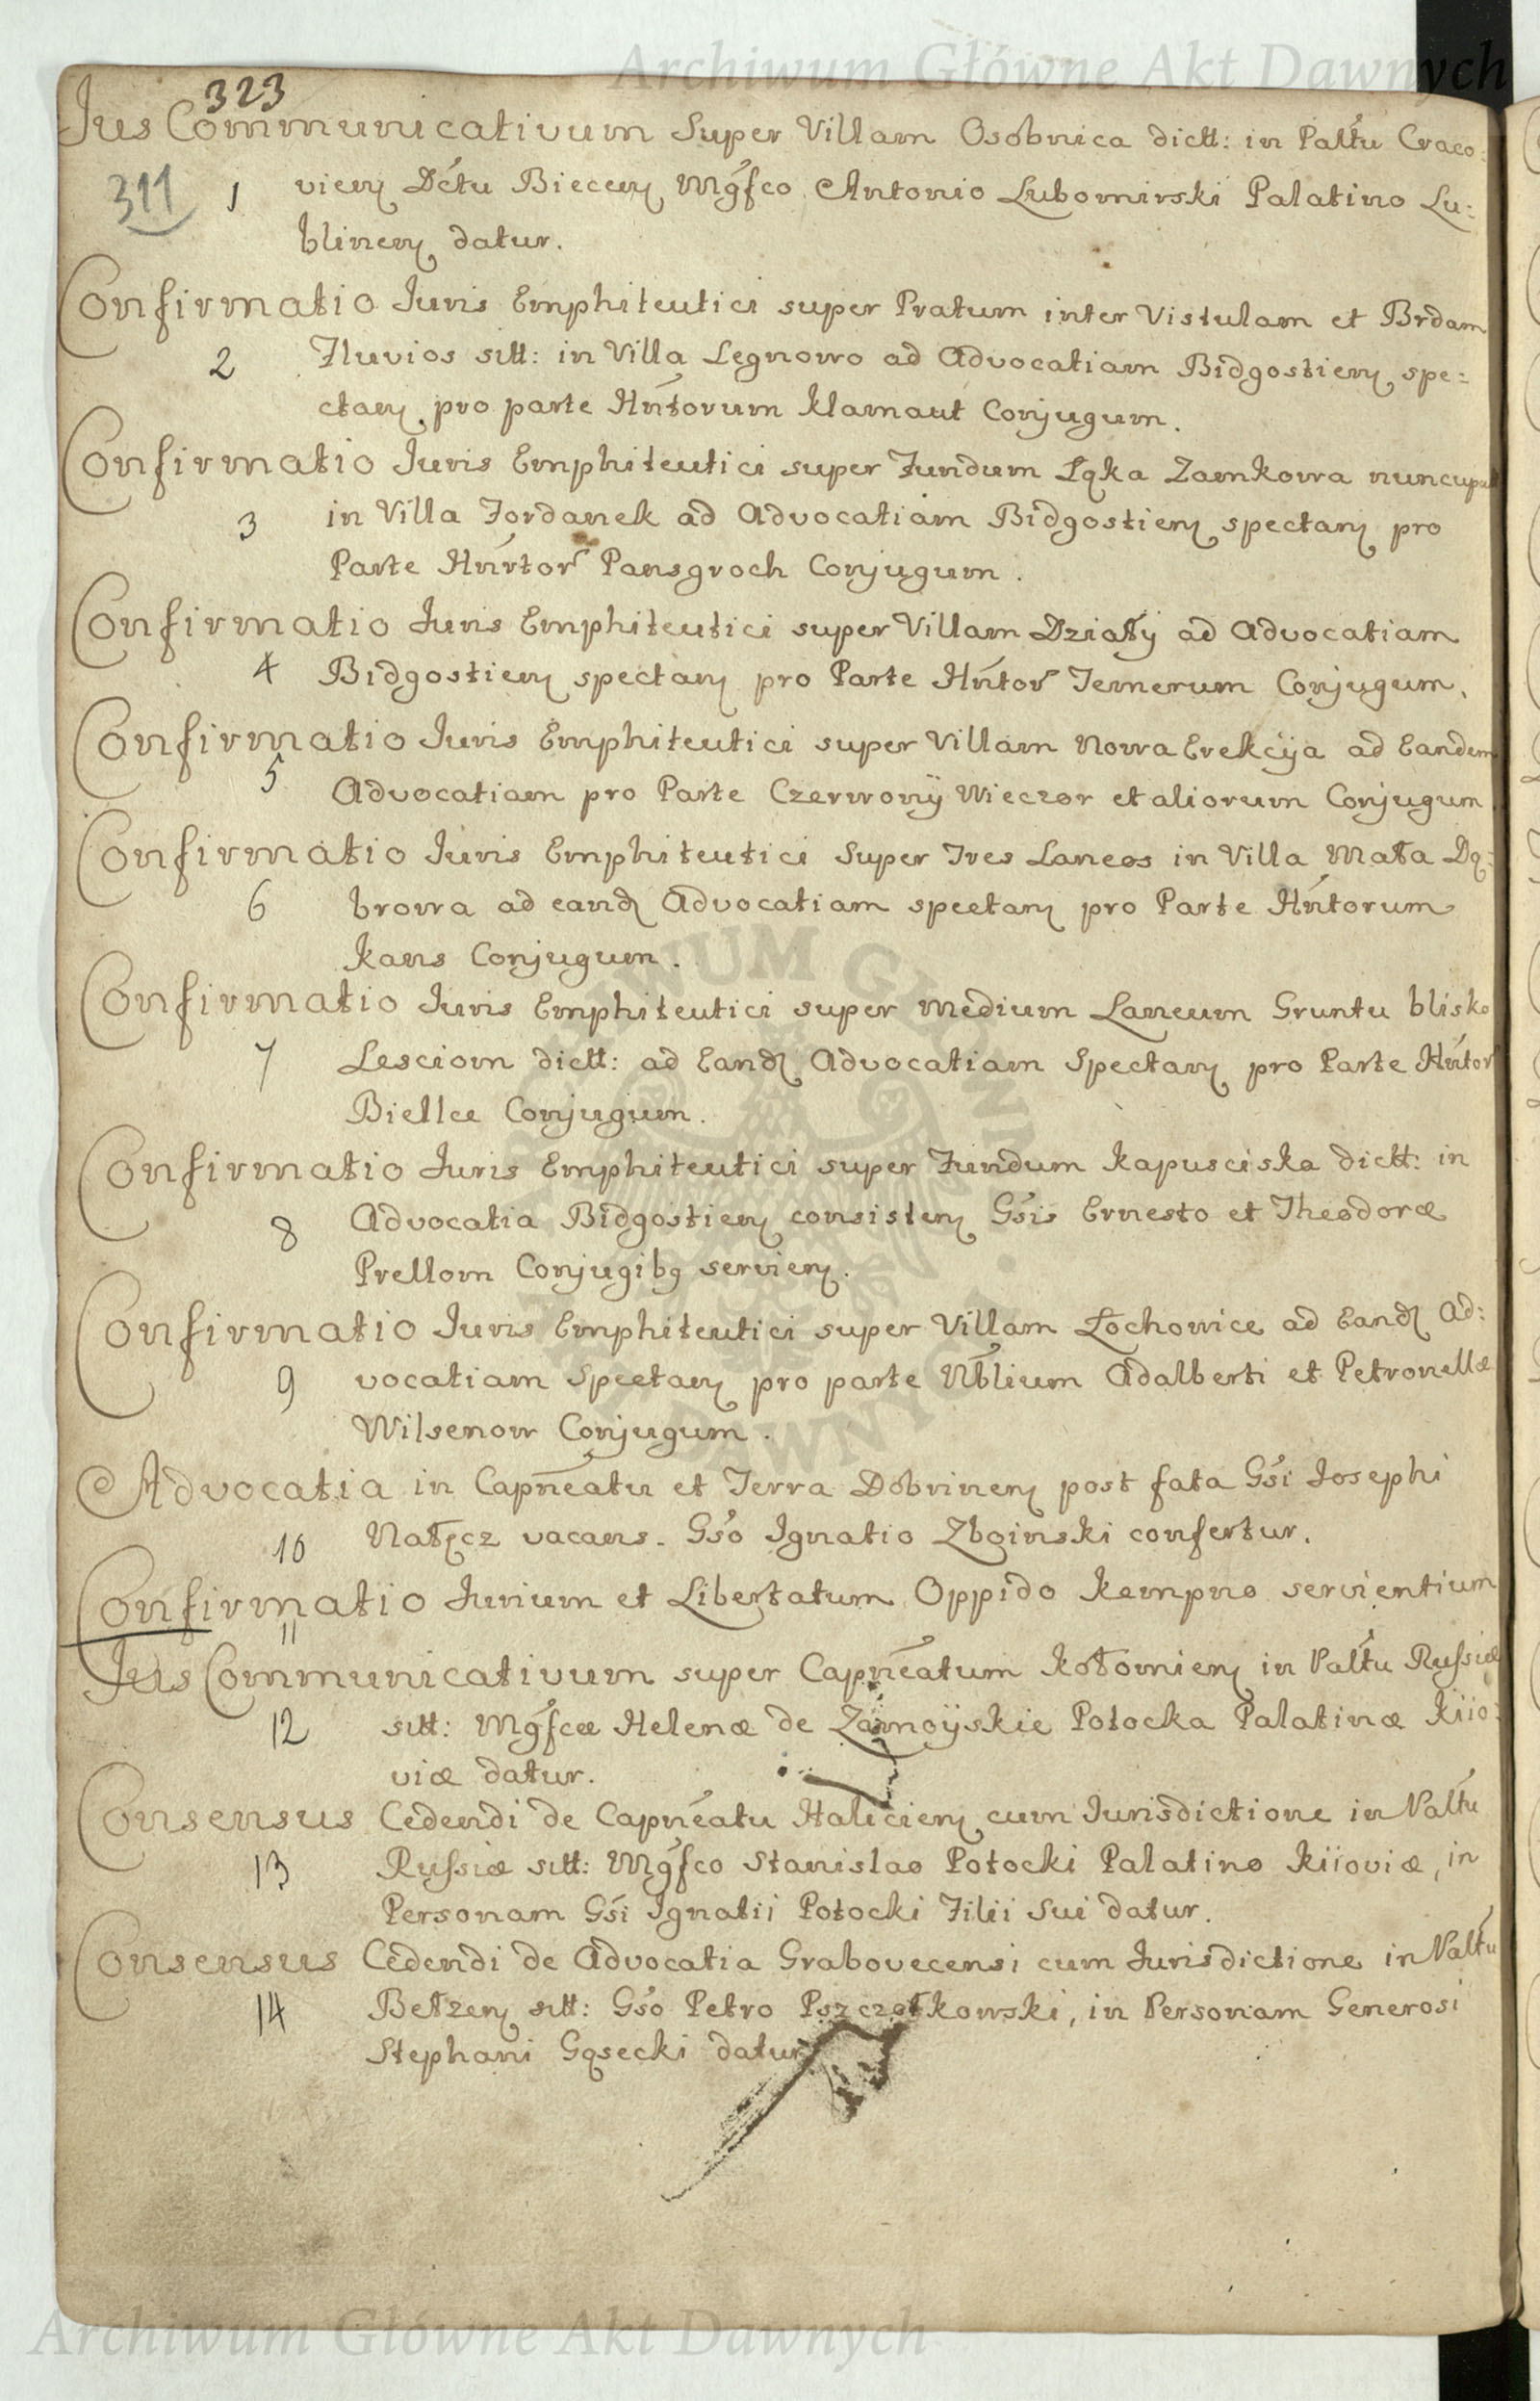 Archiwum Główne Akt Dawnych
323
Jus Communicativum Super Villam Osobnica dictt: in Palttu Craco:
311 1 vien Dctu Biecen Mgfco Antonio Lubomirski Palatino Lu:
blinen datur.
Confirmatio Juris Emphiteutici super Pratum inter Vistulam et Brdam
2 Fluvios sitt: in Villa Legnowo ad Advocatiam Bidgostien spe:
ctan pro parte Hntorum Klamaut Conjugum.
Confirmatio Juris Emphiteutici super Fundum Łąka Zamkowa nuncupat
3 in Villa Jordanek ad Advocatiam Bidgostien spectan pro
Parte Hnrtor Pansgroch Conjugum.
Confirmatio Juris Emphiteutici super Villam Działÿ ad Advocatiam
4 Bidgostien spectan pro Parte Hntor Temerum Conjugum.
Confirmatio Juris Emphiteutici super Villam Nowa Erekcÿa ad Eandem
5 Advocatiam pro Parte Czerwonÿ Wieczor et aliorum Conjugum
Confirmatio Juris Emphiteutici Super Tres Laneos in Villa Mała Dą:
6 browa ad eand Advocatiam spectan pro Parte Hntorum
Kans Conjugum.
Confirmatio Juris Emphiteutici super medium Laneum Gruntu blisko
7 Lesciom dictt: ad Eand Advocatiam Spectan pro Parte Hntor
Biellce Conjugum.
Confirmatio Juris Emphiteutici super Fundum Kapusciska dictt: in
8 Advocatia Bidgostien consisten Gsis Ernesto et Theodoræ
Prellom Conjugibq servien.
Confirmatio Juris Emphiteutici super Villam Łochowice ad Eand Ad:
9 vocatiam Spectan pro parte Nblium Adalberti et Petronellæ
Wilsenow Conjugum.
Advocatia in Capneatu et Terra Dobrinen post fata Gsi Josephi
10 Nałęcz vacans. Gso Ignatio Zboinski confertur.
Confirmatio Jurium et Libertatum Oppido Kempno servientium
11
Jus Communicativum super Capneatum Kołomien in Palttu Russiæ
12 sitt: Mgfcæ Helenæ de Zamoÿskie Potocka Palatinæ Kiio:
viæ datur.
Consensus Cedendi de Capneatu Halicien cum Jurisdictione in Palttu
13 Russiæ sitt: Mgfco Stanislao Potocki Palatino Kiioviæ, in
Personam Gsi Ignatii Potocki Filii Sui datur.
Consensus Cedendi de Advocatia Grabovecensi cum Jurisdictione in Palttu
14 Bełzen sitt: Gso Petro Pszczołkowski, in Personam Generosi
Stephani Gąsecki datur
Archiwum Główne Akt Dawnych